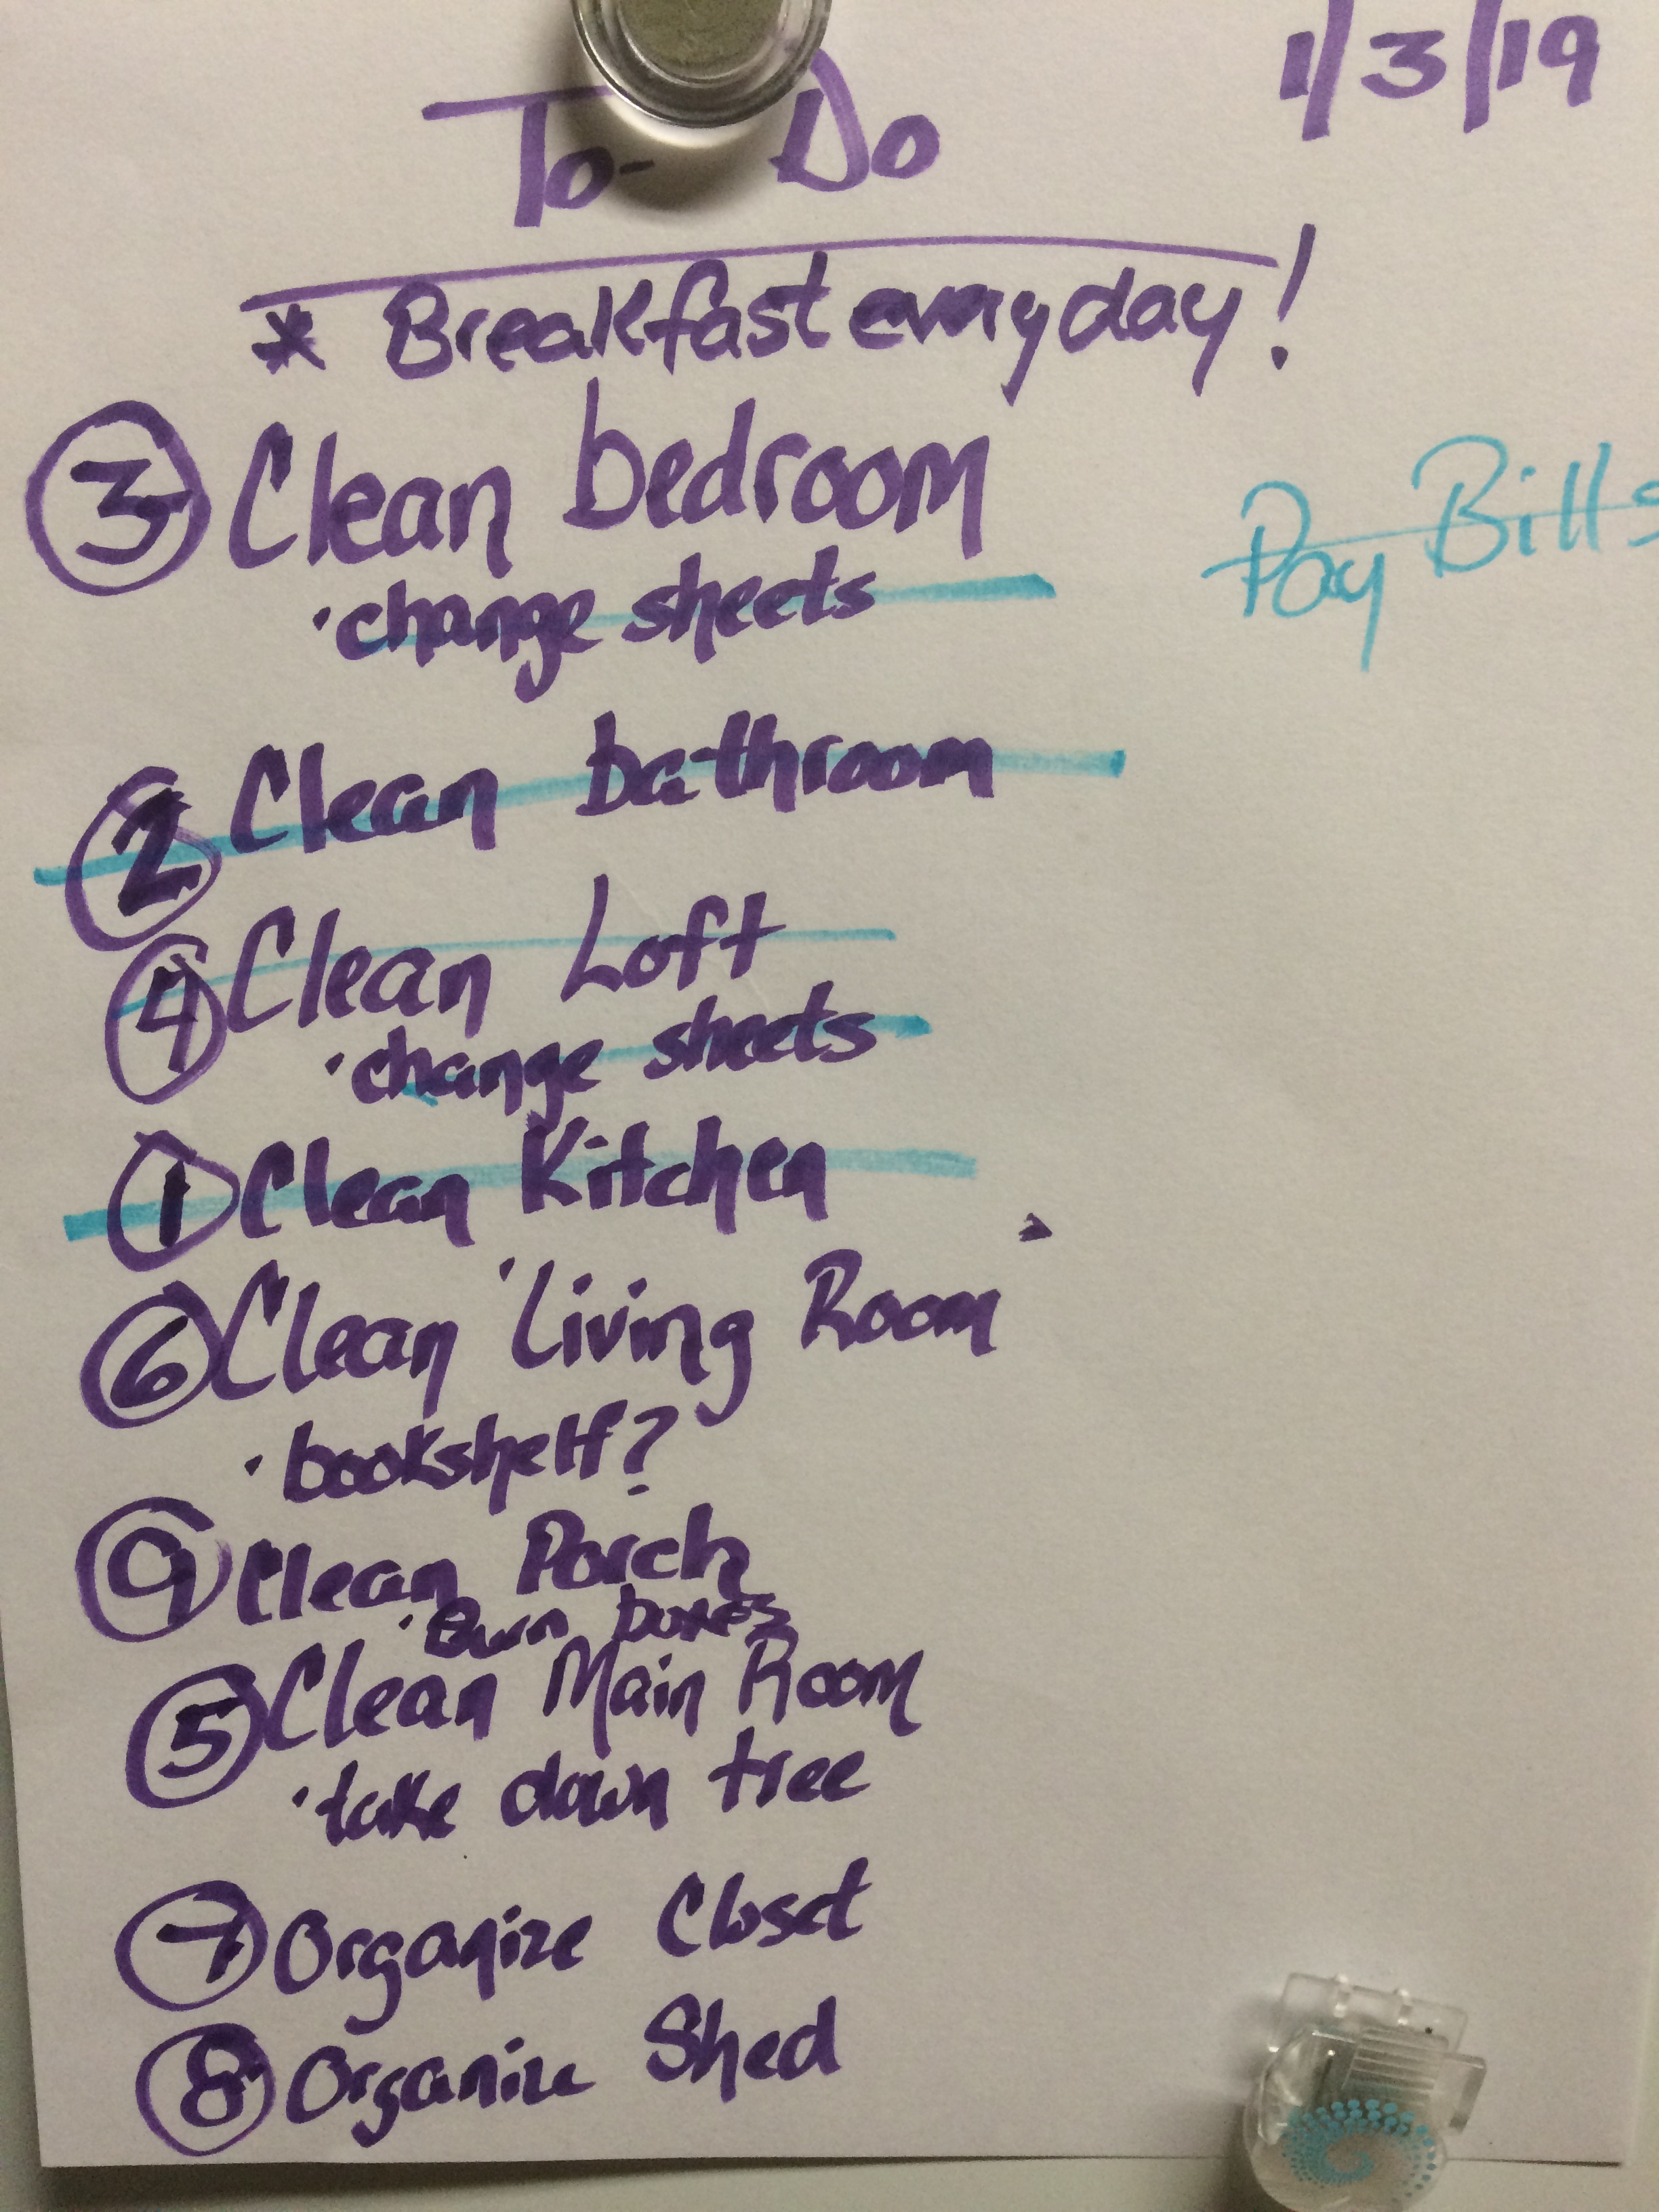 1/3/19
To-Do
* Breakfast everyday!
③ Clean bedroom
Pay Bills
·change sheets
② Clean bathroom
④ Clean Loft
·change sheets
① Clean Kitchen
⑥ Clean Living Room
·bookshelf?
⑨ Clean Porch
·Burn boxes
⑤ Clean Main Room
·take down tree
⑦ Organize Closet
⑧ Organize Shed